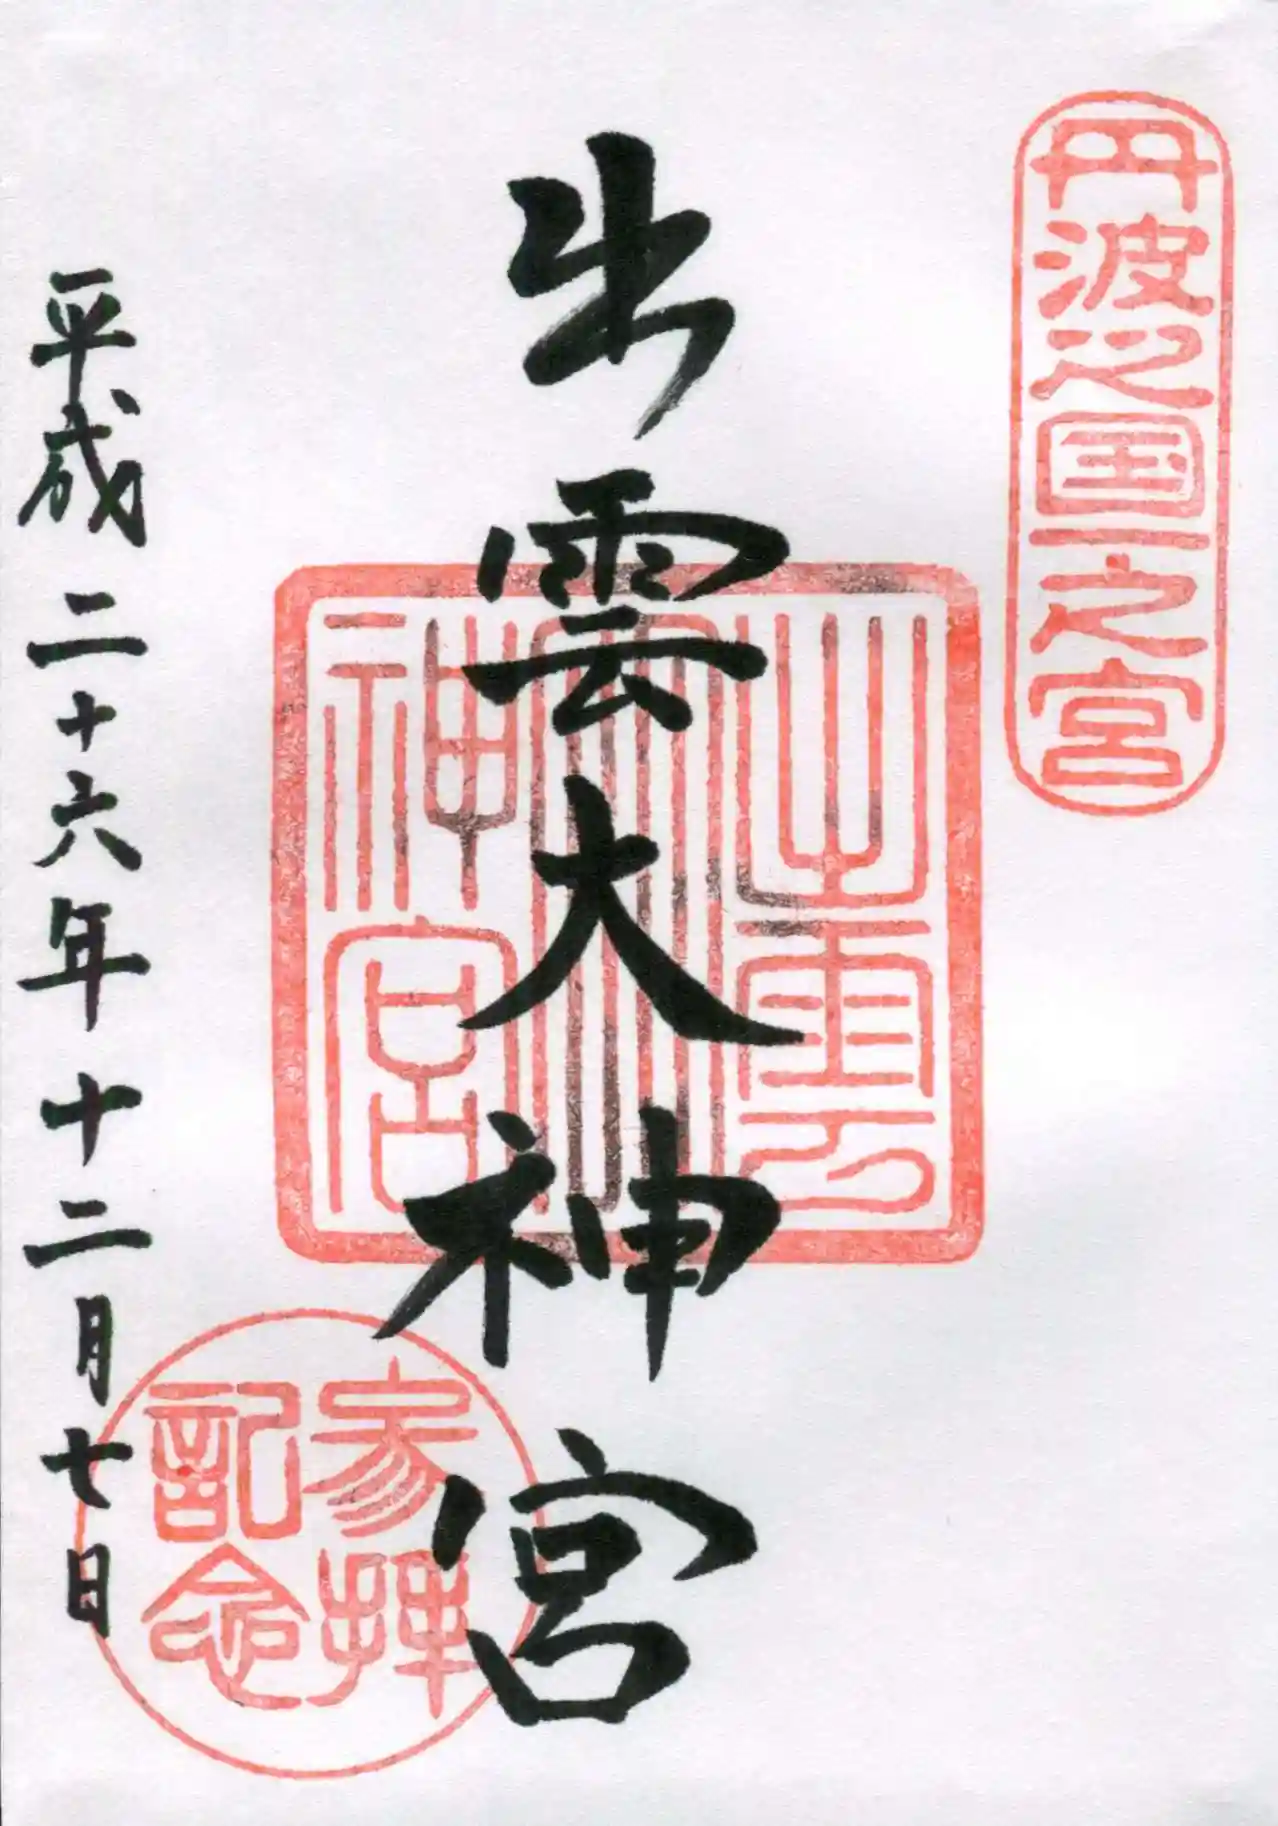 丹波之国一之宮
出雲大神宮
出雲
大
神宮
参拝
記念
平成二十六年十二月七日